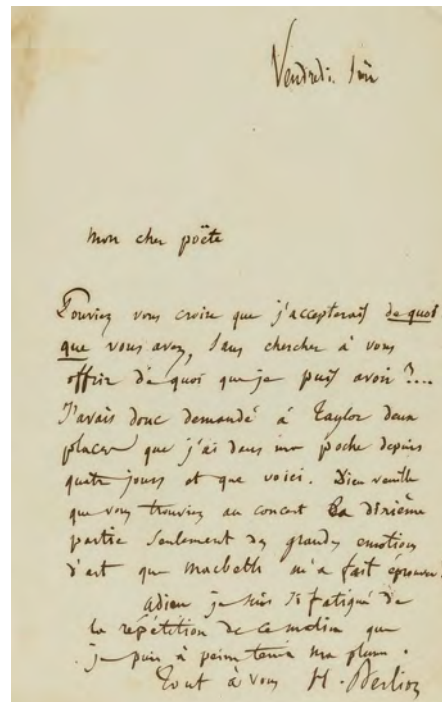 Vendredi soir
mon cher poëte
Pouviez vous croire que j'accepterais de quoi
que vous avez, sans chercher à vous
offrir de quoi que je puis avoir ?...
J'avais donc demandé à Taylor deux
places que j'ai dans ma poche depuis
quatre jours et que voici. Dieu veuille
que vous trouviez au concert la dixième
partie seulement des grandes emotions
d'art que Macbeth m'a fait éprouver.
adieu je suis si fatigué de
la répétition de ce matin que
je puis à peine tenir ma plume.
tout à vous H. Berlioz